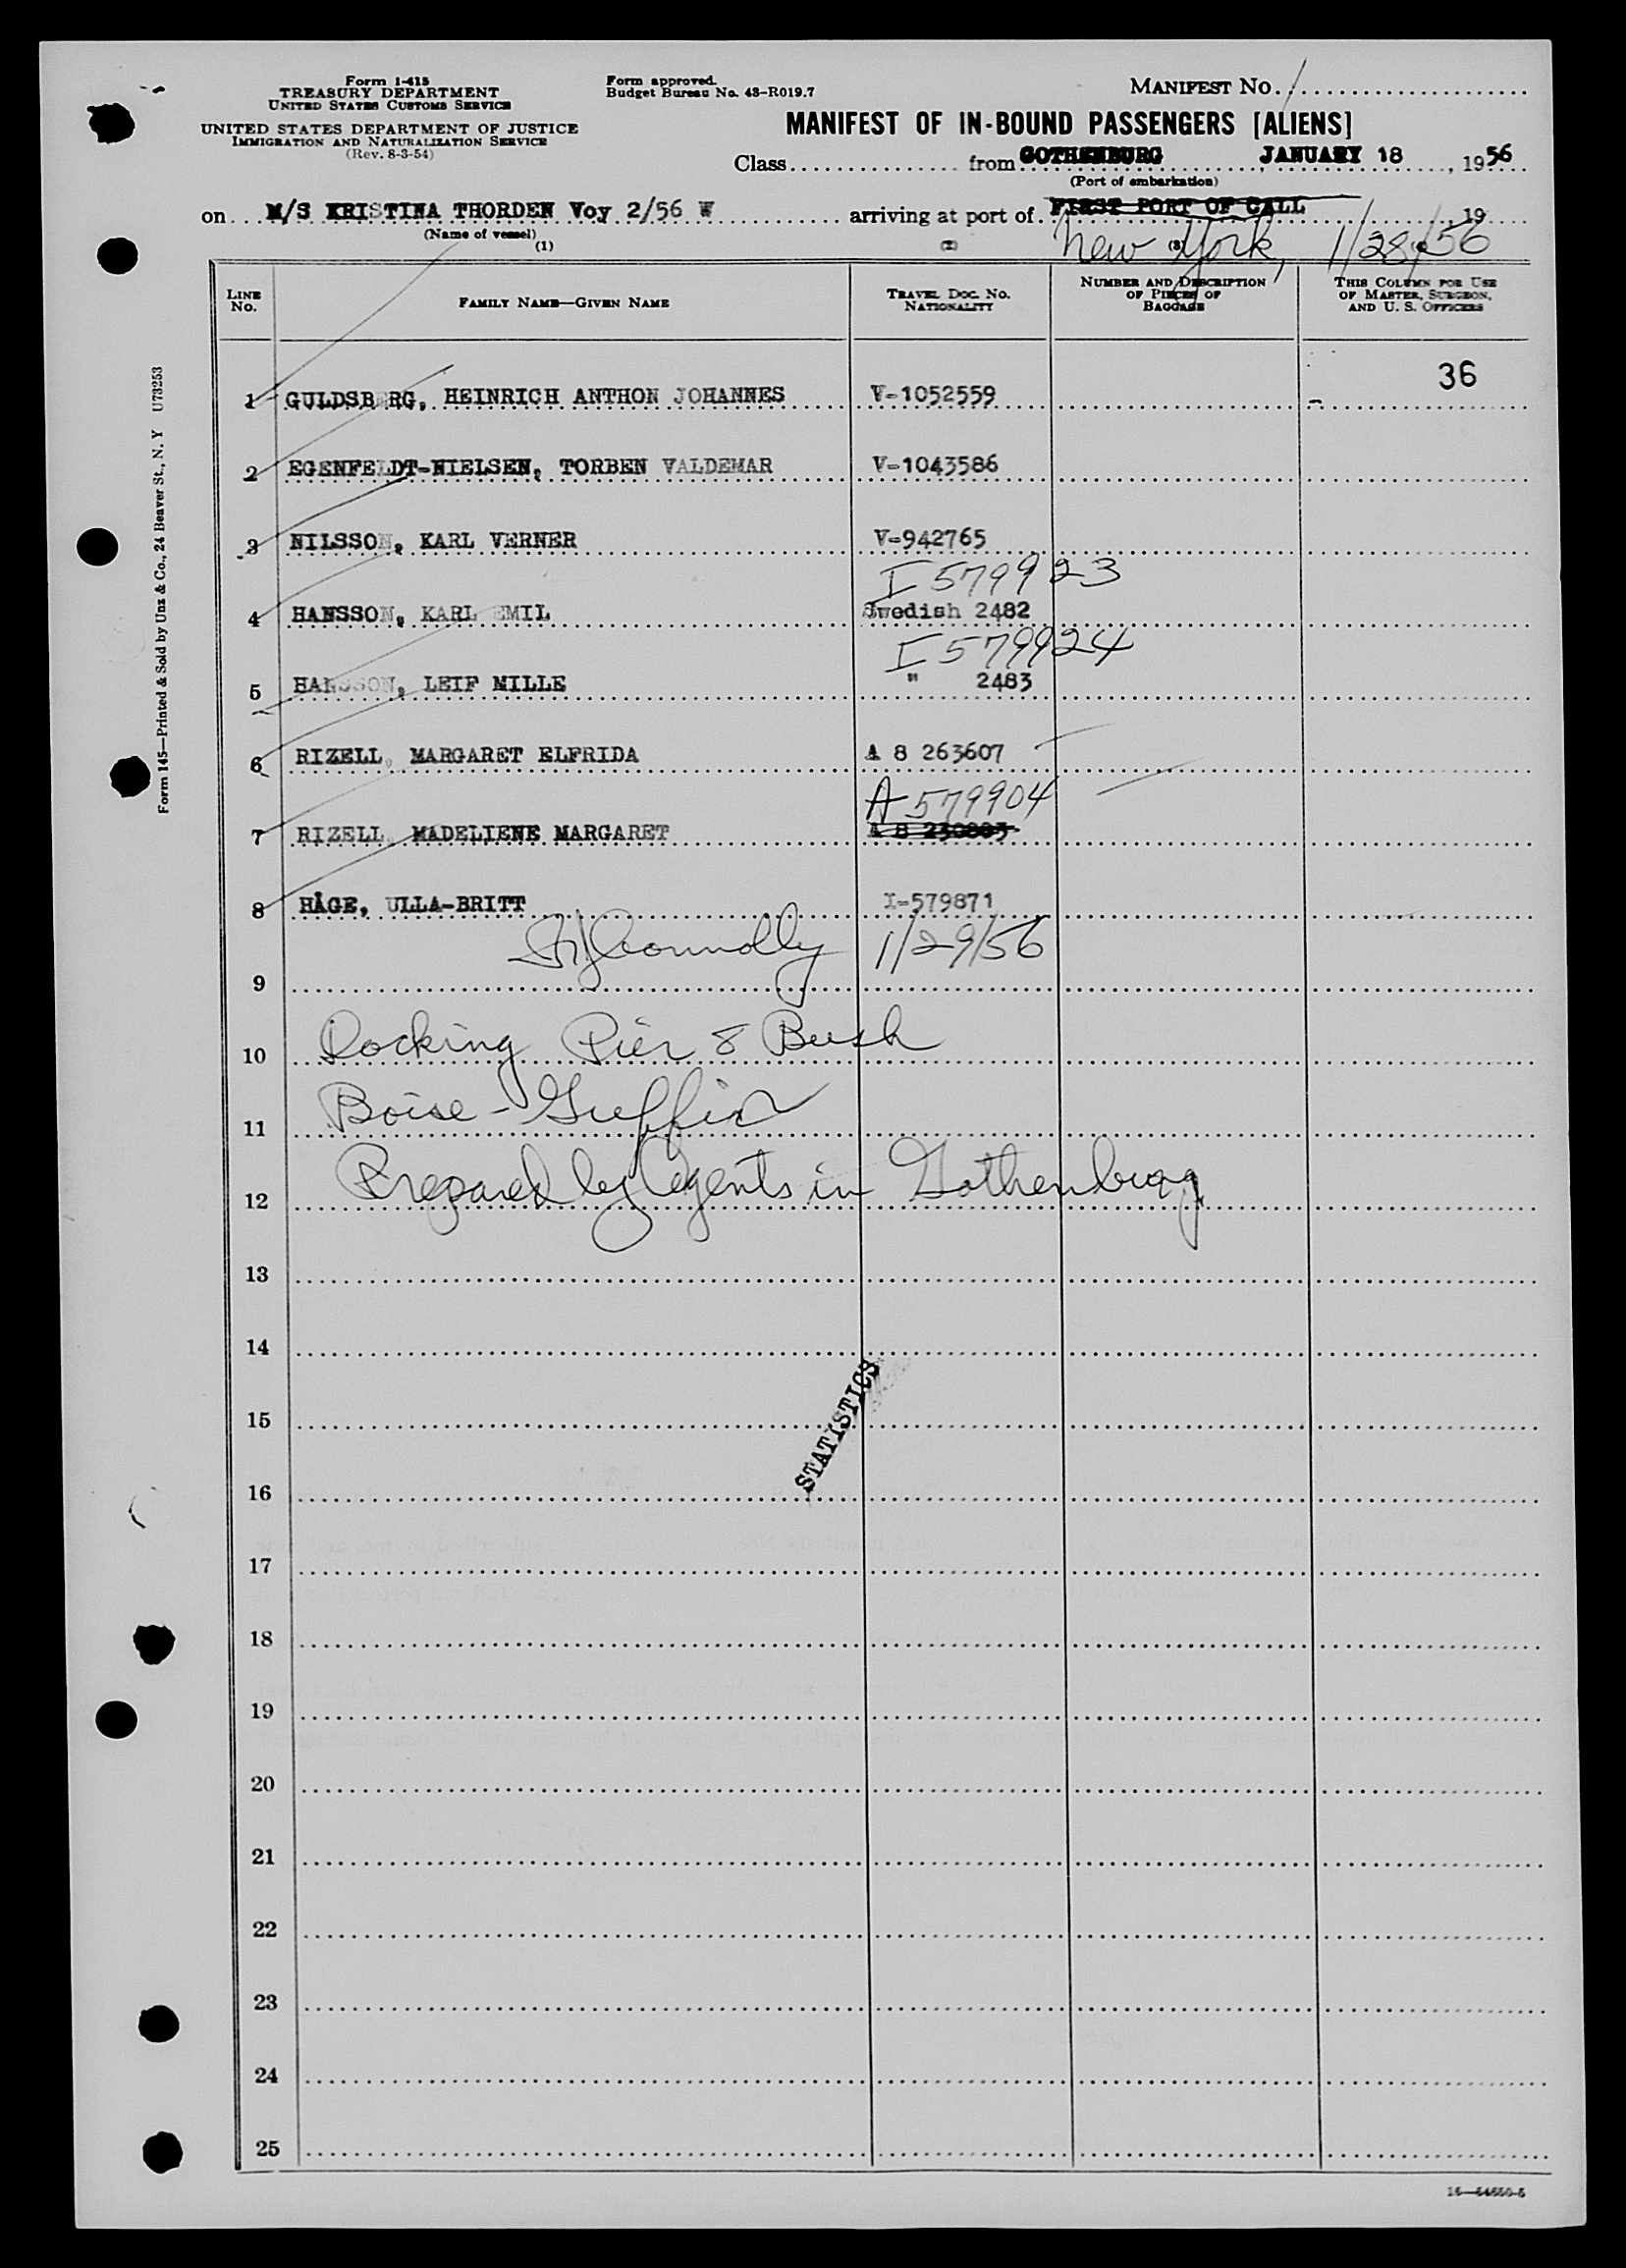 Form I-415
TREASURY DEPARTMENT
UNITED STATES CUSTOMS SERVICE
UNITED STATES DEPARTMENT OF JUSTICE
IMMIGRATION AND NATURALIZATION SERVICE
(Rev. 8-3-54)
Form approved.
Budget Bureau No. 43-R019.7
MANIFEST No. 1
MANIFEST OF IN-BOUND PASSENGERS [ALIENS]
Class from GOTHENBURG, JANUARY 18, 1956
(Port of embarkation)
on M/S KRISTINA THORDEN Voy 2/56 W arriving at port of FIRST PORT OF CALL, 19
(Name of vessel)
New York, 1/28/56
(1) (2) (3)
LINE No. FAMILY NAME—GIVEN NAME TRAVEL DOC. NO. NATIONALITY NUMBER AND DESCRIPTION OF PIECES OF BAGGAGE THIS COLUMN FOR USE OF MASTER, SURGEON, AND U. S. OFFICERS
36
1 GULDSBERG, HEINRICH ANTHON JOHANNES V-1052559 -
2 EGENFELDT-NIELSEN, TORBEN VALDEMAR V-1043586
3 NILSSON, KARL VERNER V-942765
I 579923
4 HANSSON, KARL EMIL Swedish 2482
I 579924
5 HANSSON, LEIF MILLE " 2483
6 RIZELL, MARGARET ELFRIDA A 8 263607
A 579904
7 RIZELL, MADELIENE MARGARET A 8 230883
8 HÅGE, ULLA-BRITT I-579871
Connolly 1/29/56
9
10 Docking Pier 8 Bush
11 Boise - Griffin
12 Prepared by Agents in Gothenburg
13
14
STATISTICS
15
16
17
18
19
20
21
22
23
24
25
Form 145—Printed & Sold by Unz & Co., 24 Beaver St., N. Y U73253